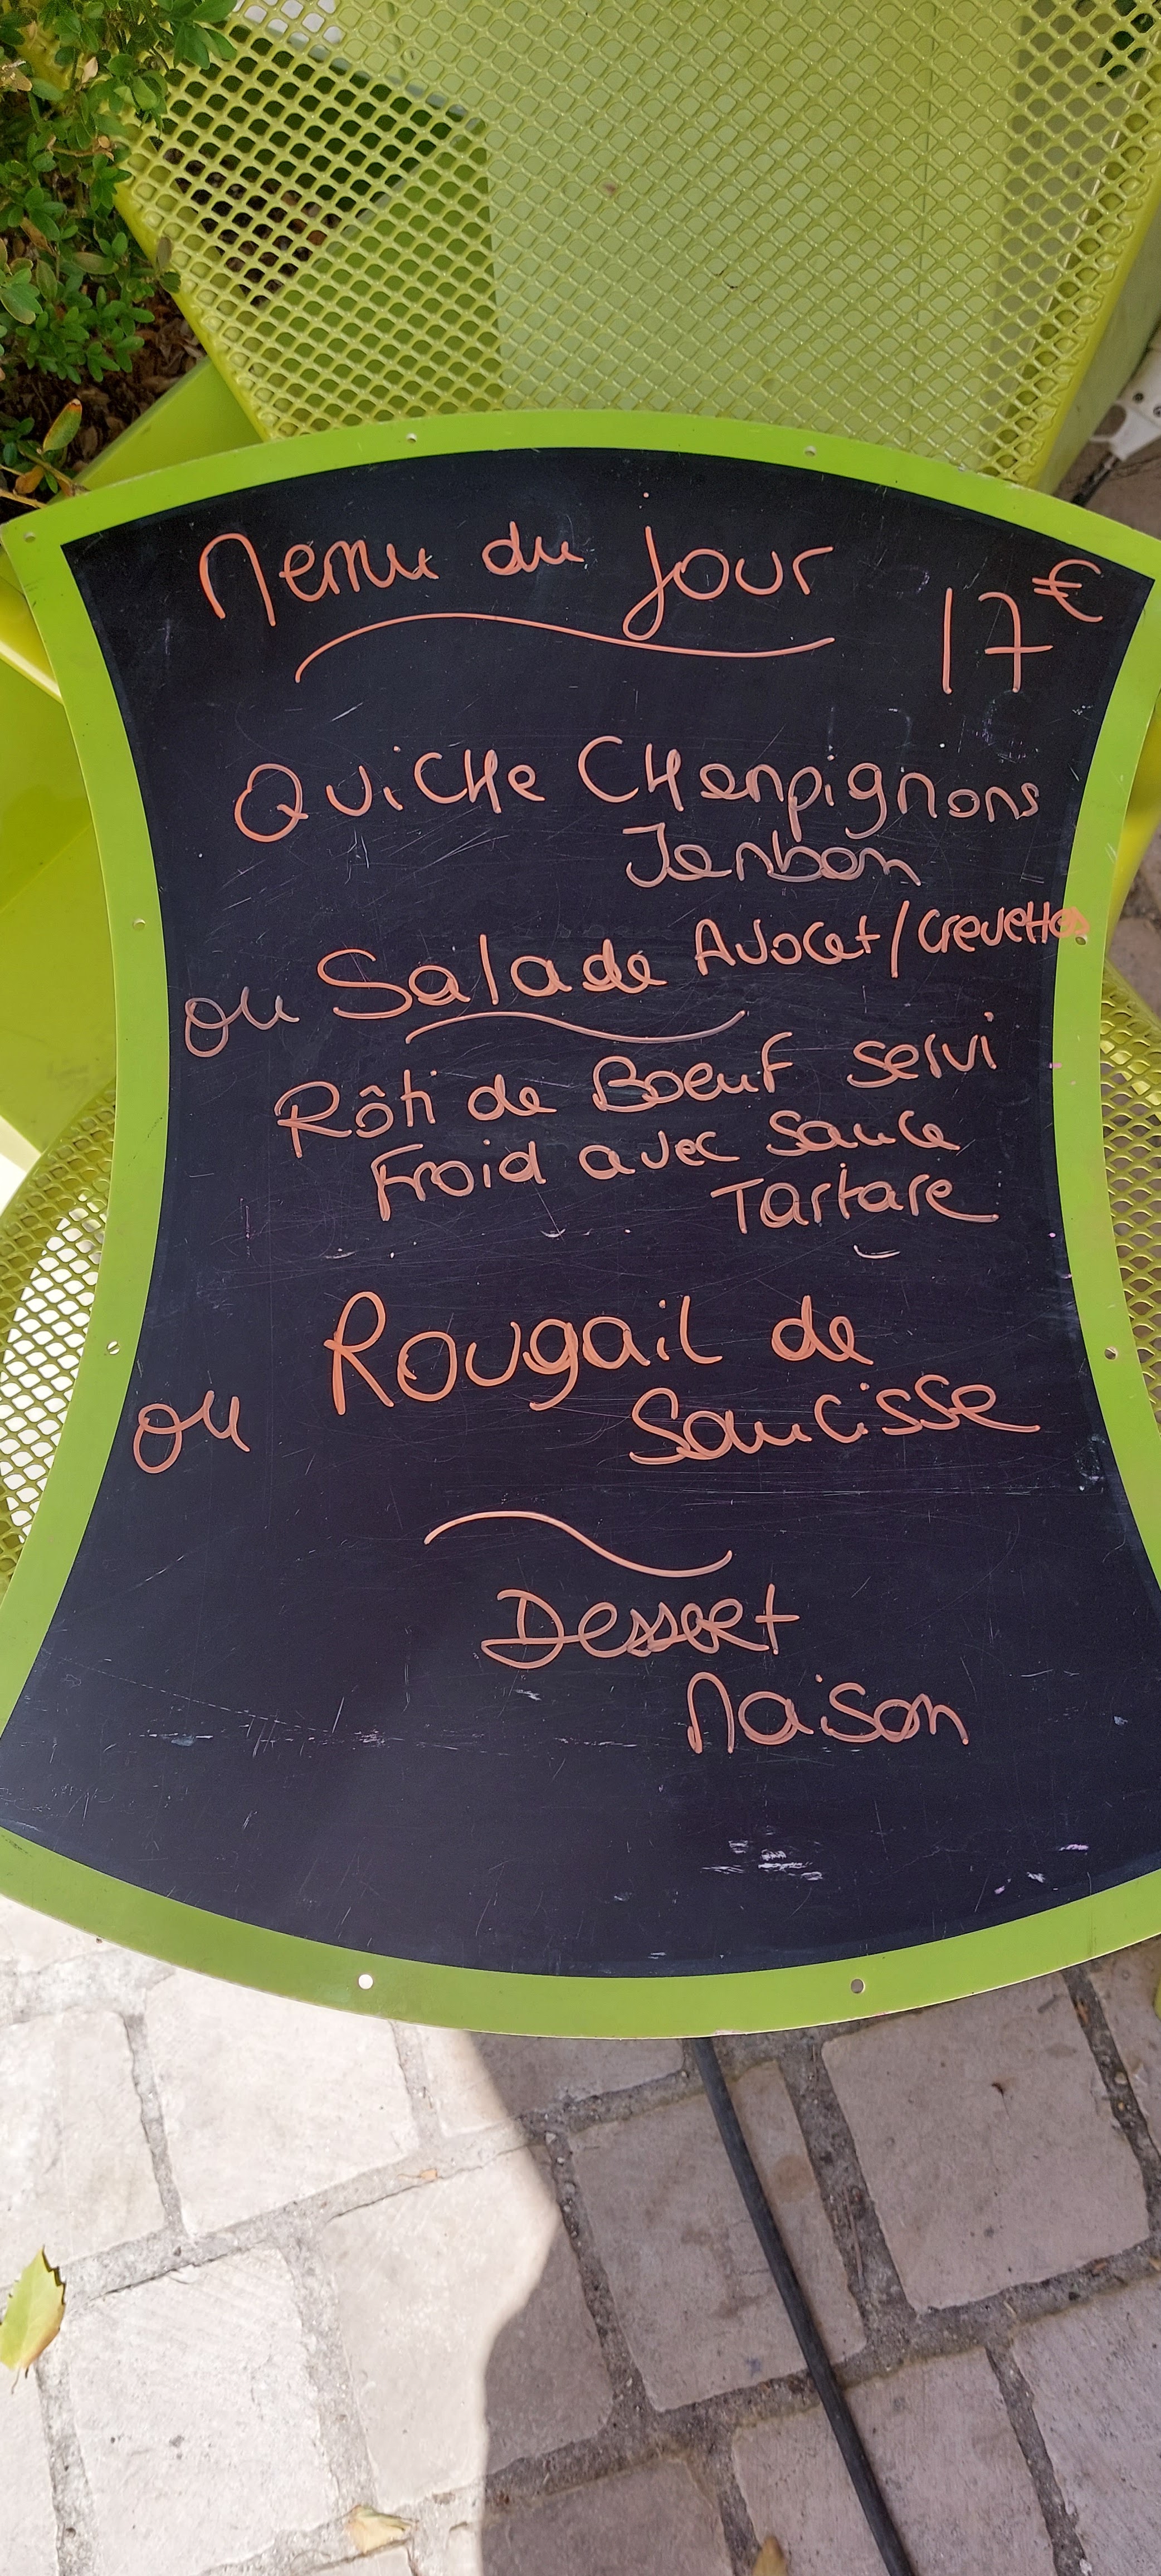 Menu du jour 17€
Quiche Champignons
Jambon
ou Salade Avocat/crevettes
Rôti de Boeuf servi
Froid avec sauce
Tartare
ou Rougail de
Saucisse
Dessert
Maison